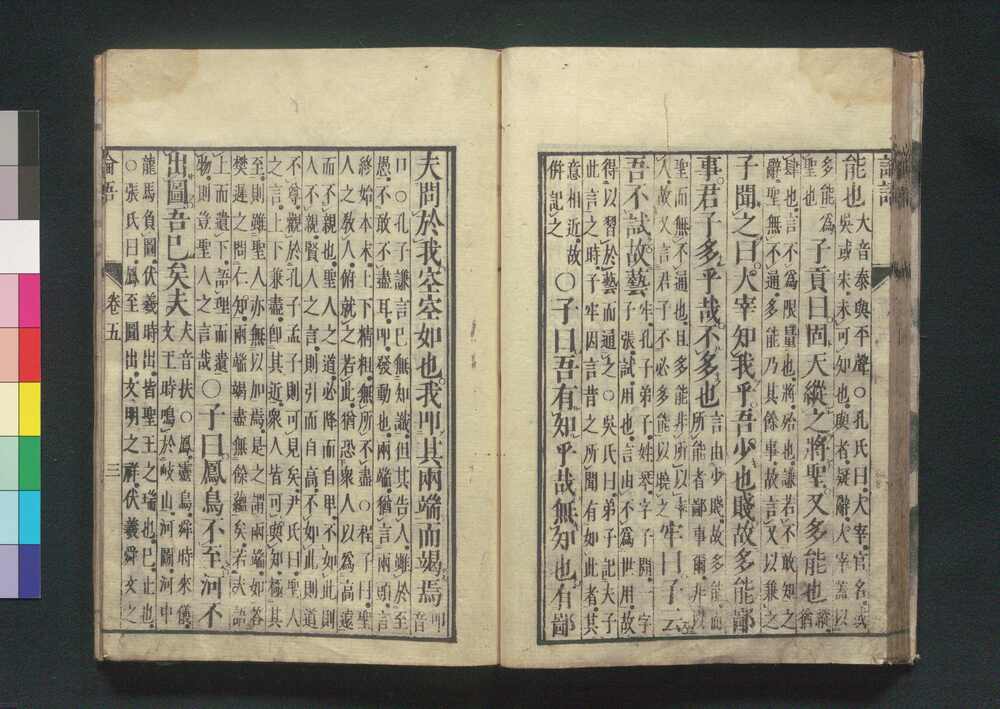 論語
能也
大音泰與平聲○孔氏曰大宰官名或
吳或宋未可知也與者疑辭大宰蓋以
多能為
聖也
子貢曰固天縱之將聖又多能也
縱
猶
肆也言不為限量也將殆也謙若不敢知之
辭聖無不通多能乃其餘事故言又以兼之
子聞之曰大宰知我乎吾少也賤故多能鄙
事君子多乎哉不多也
言由少賤故多能而
所能者鄙事爾非以
聖而無不通也且多能非所以率
人故又言君子不必多能以曉之
牢曰子云
吾不試故藝
牢孔子弟子姓琴字子開一字
子張試用也言由不為世用故
得以習於藝而通之○吳氏曰弟子記夫子
此言之時子牢因言昔之所聞有如此者其
意相近故
併記之
○子曰吾有知乎哉無知也有鄙
夫問於我空空如也我叩其兩端而竭焉
叩
音
口○孔子謙言己無知識但其告人雖於至
愚不敢不盡耳叩發動也兩端猶言兩頭言
終始本末上下精粗無所不盡○程子曰聖
人之教人俯就之若此猶恐衆人以為高遠
而不親也聖人之道必降而自卑不如此則
人不親賢人之言則引而自高不如此則道
不尊觀於孔子孟子則可見矣尹氏曰聖人
之言上下兼盡即其近衆人皆可與知極其
至則雖聖人亦無以加焉是之謂兩端如答
樊遲之問仁知兩端竭盡無餘蘊矣若夫語
上而遺下語理而遺
物則豈聖人之言哉
○子曰鳳鳥不至河不
出圖吾已矣夫
夫音扶○鳳靈鳥舜時來儀
文王時鳴於岐山河圖河中
龍馬負圖伏羲時出皆聖王之瑞也已止也
○張氏曰鳳至圖出文明之祥伏羲舜文之
論語 卷五 三